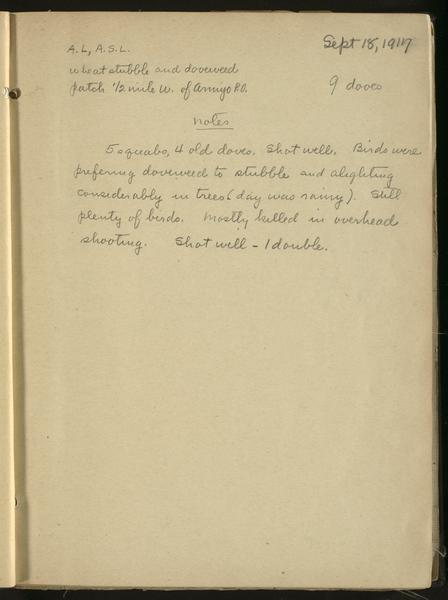 Sept 18, 1917
A.L, A.S.L.
wheat stubble and doveweed
patch 1/2 mile W. of Armijo P.O.
9 doves
notes
5 squabs, 4 old doves. Shot well. Birds were
preferring doveweed to stubble and alighting
considerably in trees (day was rainy). Still
plenty of birds. Mostly killed in overhead
shooting. Shot well - 1 double.